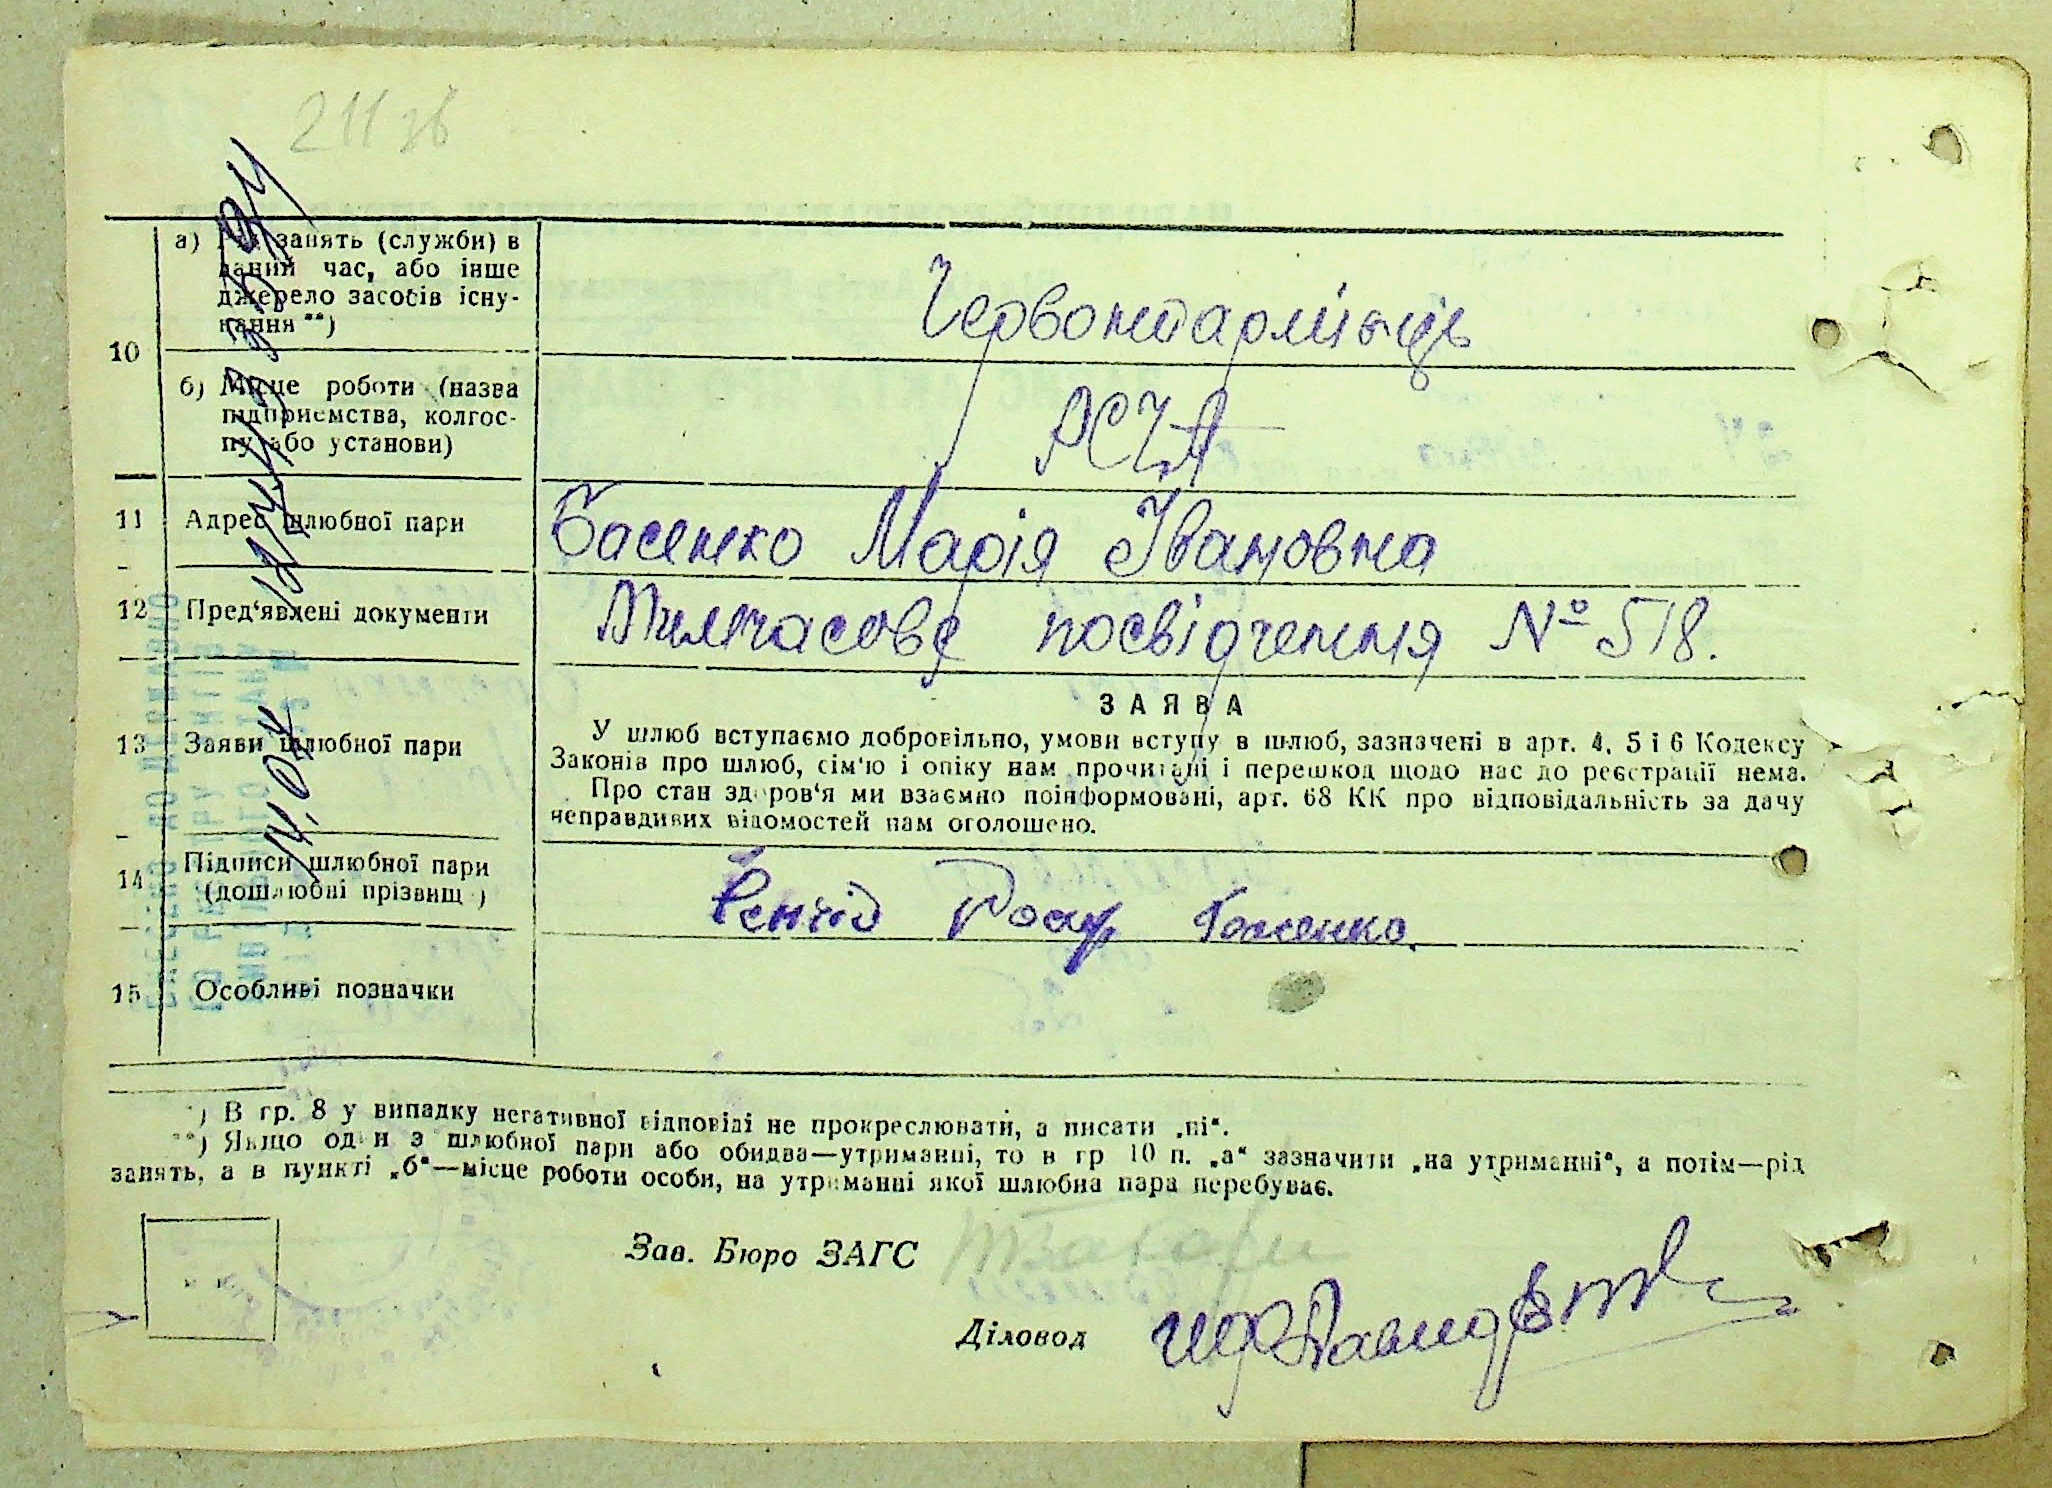 211 зв
10
а) Рід занять (служби) в
даний час, або інше
джерело засобів існу-
вання **)
Червонтармієць
б) Місце роботи (назва
підприємства, колгос-
пу або установи)
РСЧА
11 Адрес шлюбної пари
Басенко Марія Івановна
12 Пред'явлені документи
Тимчасове посвідчення № 518.
13 Заяви шлюбної пари
ЗАЯВА
У шлюб вступаємо добровільно, умови вступу в шлюб, зазначені в арт. 4, 5 і 6 Кодексу
Законів про шлюб, сім'ю і опіку нам прочитані і перешкод щодо нас до реєстрації нема.
Про стан здоров'я ми взаємно поінформовані, арт. 68 КК про відповідальність за дачу
неправдивих відомостей нам оголошено.
14 Підписи шлюбної пари
(дошлюбні прізвищ )
15 Особливі позначки
*) В гр. 8 у випадку негативної відповіді не прокреслювати, а писати „ні".
**) Якщо один з шлюбної пари або обидва—утриманці, то в гр 10 п. „а" зазначити „на утриманні", а потім—рід
занять, а в пункті „б"—місце роботи особи, на утриманні якої шлюбна пара перебуває.
Зав. Бюро ЗАГС
Діловод